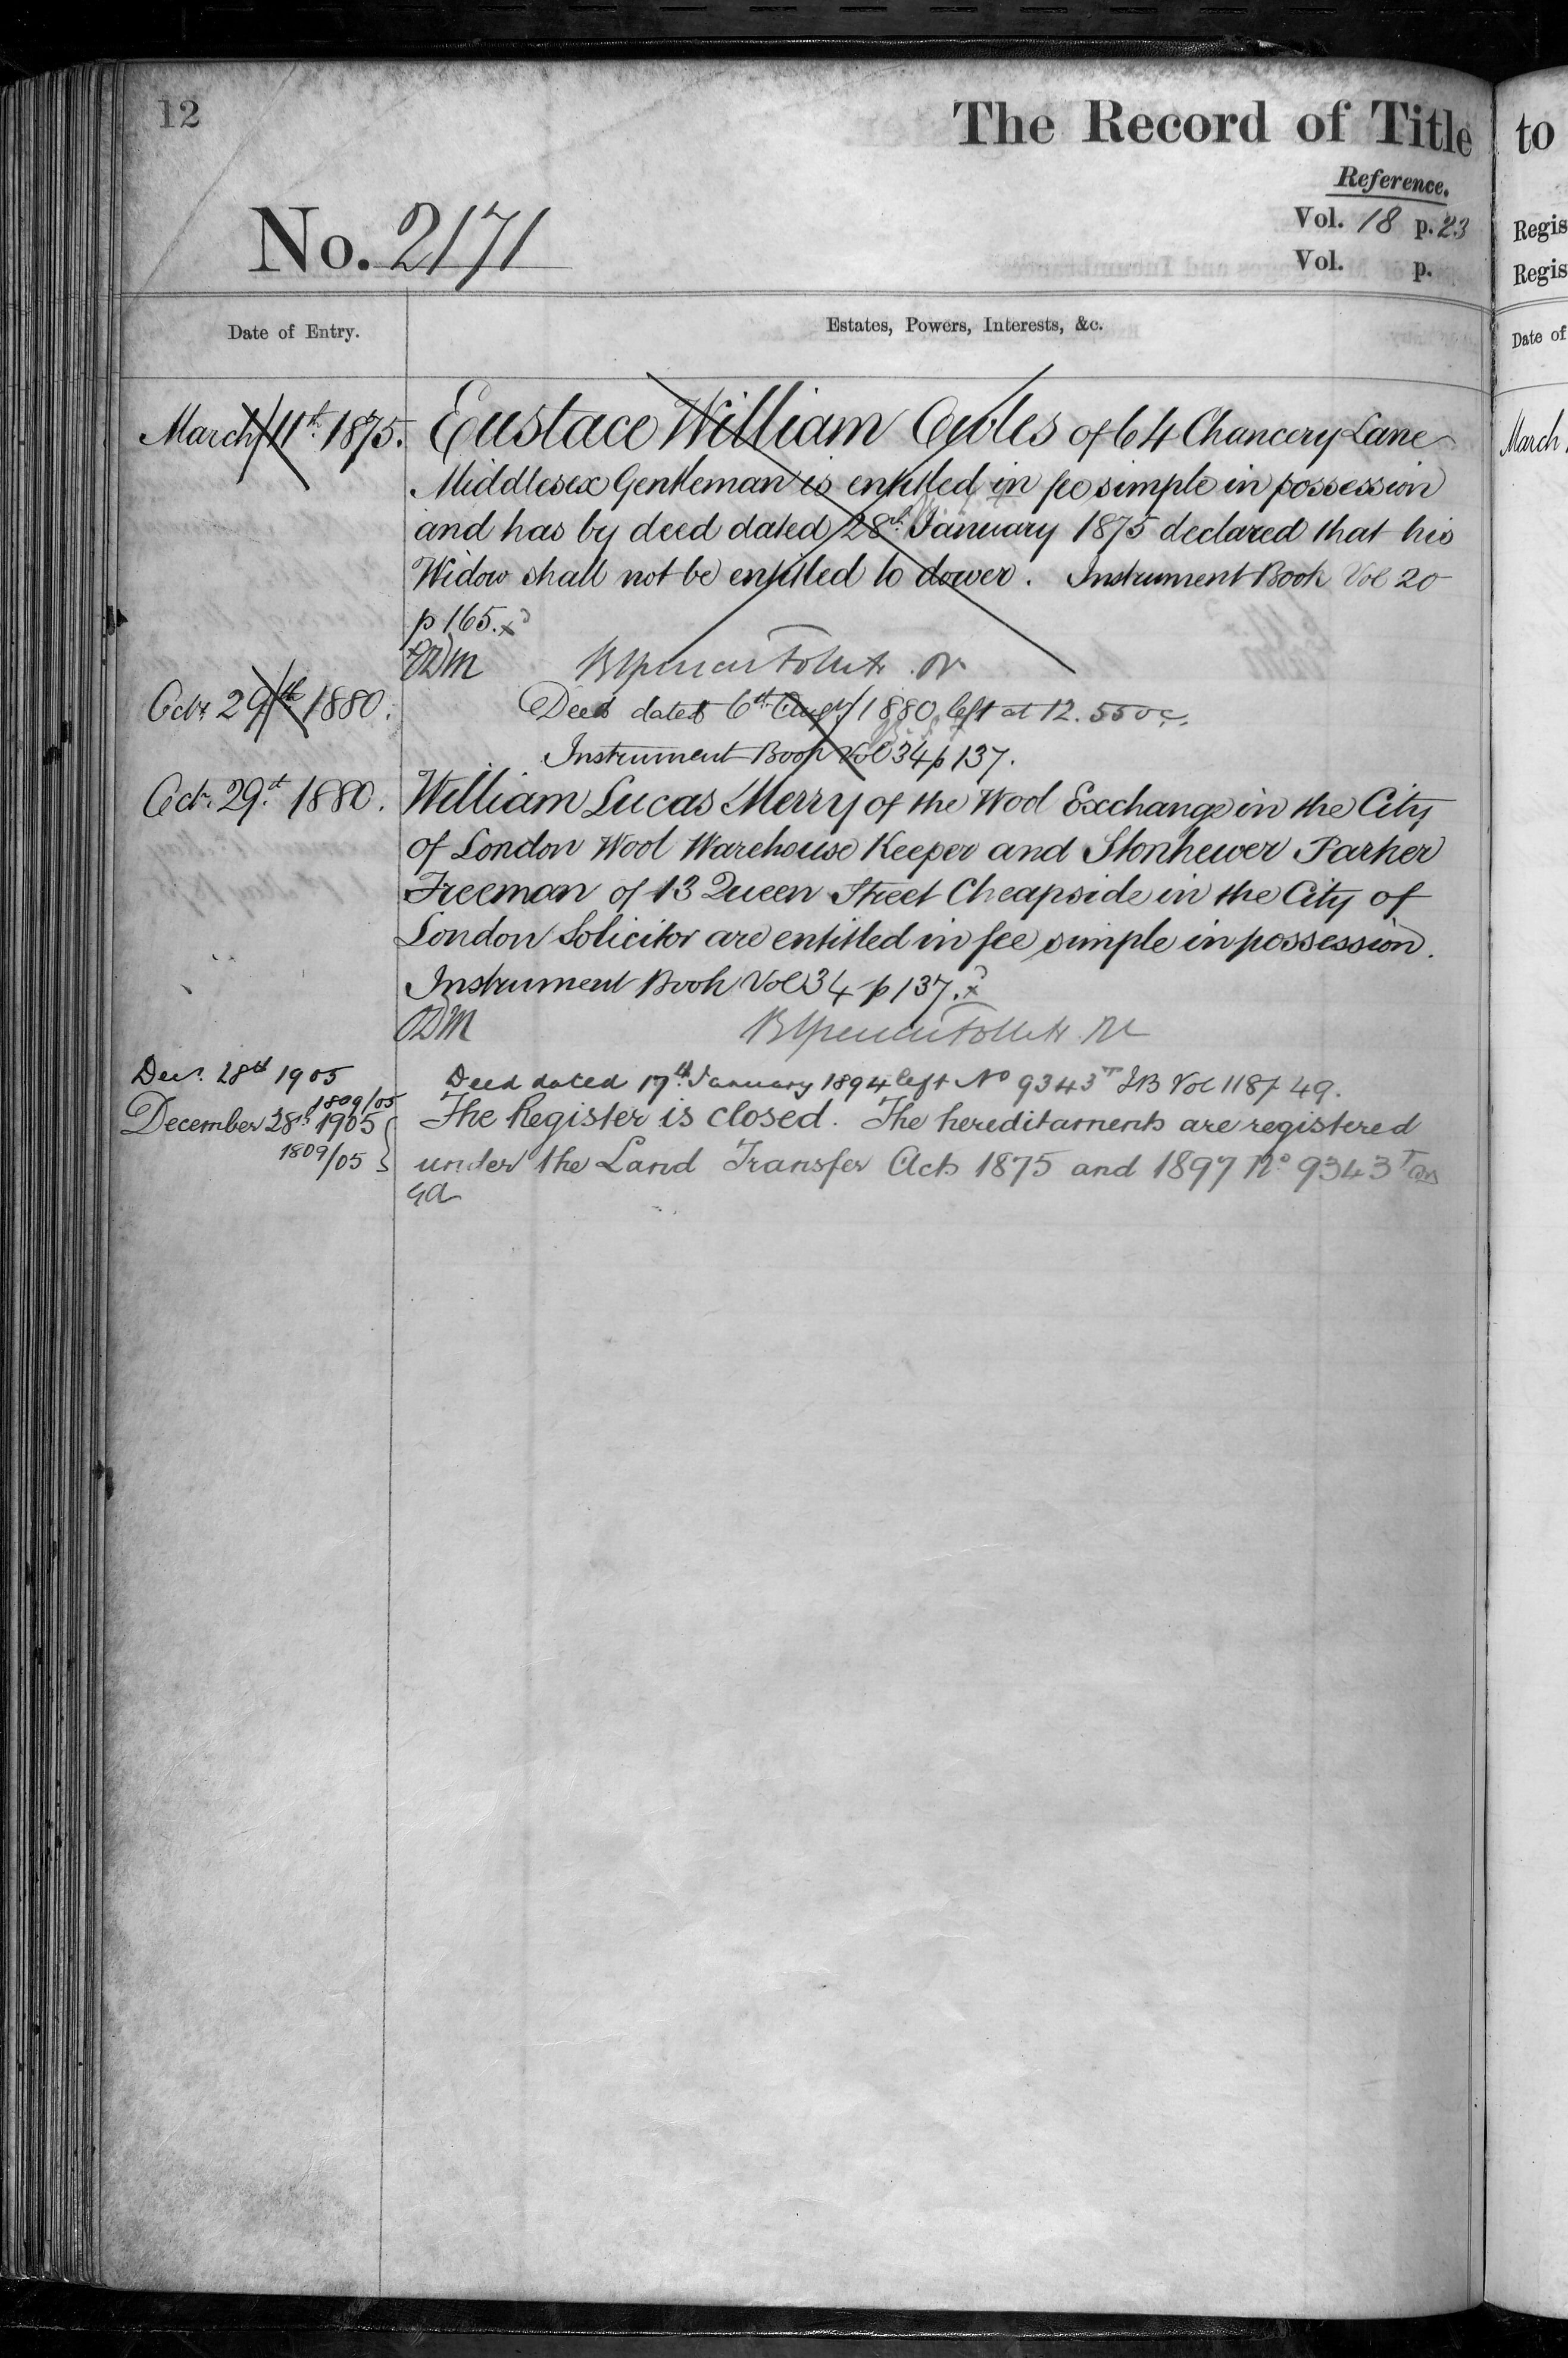 12
The Record of Title
to
Reference.
No. 2171
Vol. 18 p. 23
Vol. p.
Regis
Regis
Date of Entry.
Estates, Powers, Interests, &c.
Date of
March 11th 1875.
Eustace William of 64 Chancery Lane
Middlesex Gentleman is entitled in fee simple in possession
and has by deed dated 28th January 1875 declared that his
Widow shall not be entitled to dower. Instrument Book Vol 20
p 165.
ODM
Octr 29th 1880.
Deed dated 6th Augt 1880 left at 12.55
Instrument Book Vol 34 p 137.
Octr 29th 1880.
William Lucas Merry of the Wool Exchange in the City
of London Wool Warehouse Keeper and Stonhewer Parker
Freeman of 13 Queen Street Cheapside in the City of
London Solicitor are entitled in fee simple in possession.
Instrument Book Vol 34 p 137.
ODM
Decr. 28th 1905
1809/05
Deed dated 17th January 1894 left No 9343 IB Vol 1187 49.
December 28th 1905
1809/05
The Register is closed. The hereditaments are registered
under the Land Transfer Acts 1875 and 1897 No 9343
March